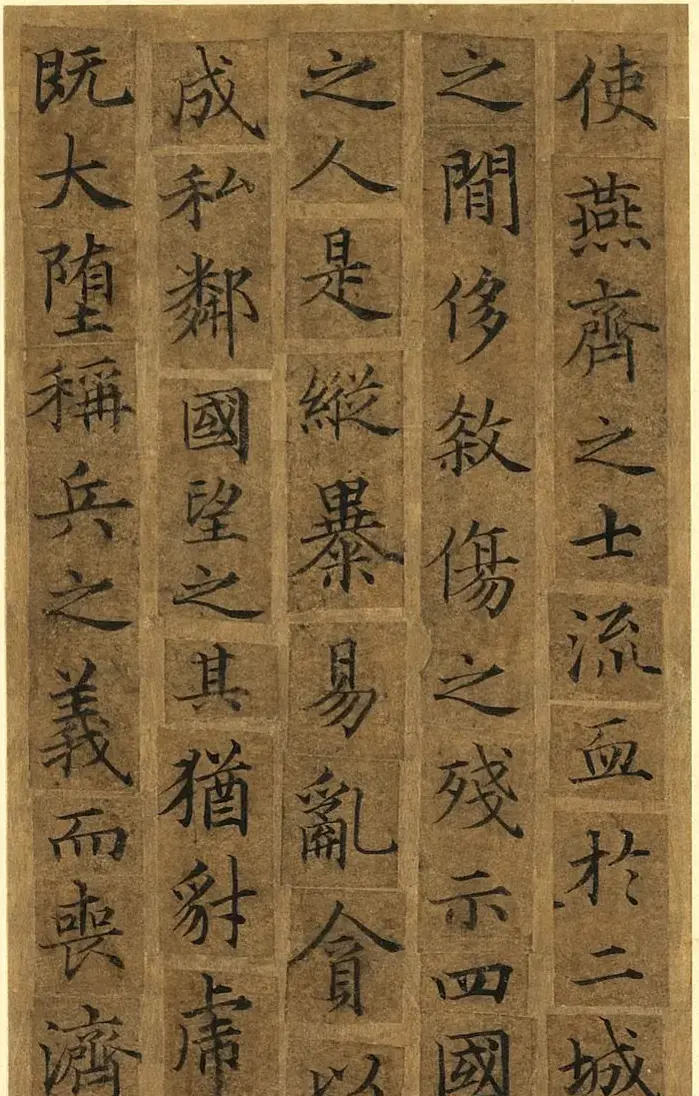 使燕齊之士流血於二城
之閒侈殺傷之殘示四國
之人是縱暴易亂貪以
成私鄰國望之其猶豺虎
既大墮稱兵之義而喪濟